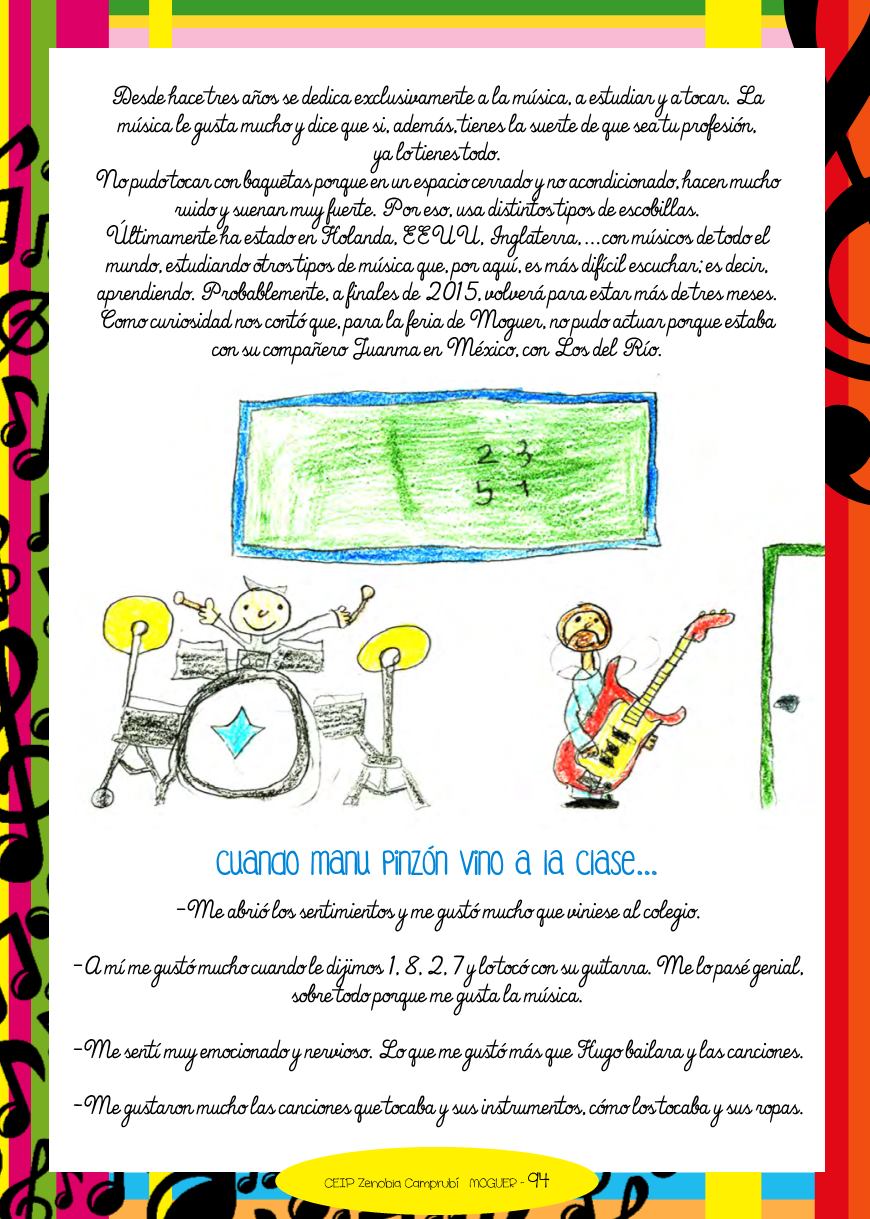 Desde hace tres años se dedica exclusivamente a la música, a estudiar y a tocar. La
música le gusta mucho y dice que si, además, tienes la suerte de que sea tu profesión,
ya lo tienes todo.
No pudo tocar con baquetas porque en un espacio cerrado y no acondicionado, hacen mucho
ruido y suenan muy fuerte. Por eso, usa distintos tipos de escobillas.
Últimamente ha estado en Holanda, EEUU, Inglaterra,...con músicos de todo el
mundo, estudiando otros tipos de música que, por aquí, es más difícil escuchar; es decir,
aprendiendo. Probablemente, a finales de 2015, volverá para estar más de tres meses.
Como curiosidad nos contó que, para la feria de Moguer, no pudo actuar porque estaba
con su compañero Juanma en México, con Los del Río.
2 3
5 1
Cuando manu Pinzón vino a la clase...
-Me abrió los sentimientos y me gustó mucho que viniese al colegio.
-A mí me gustó mucho cuando le dijimos 1, 8, 2, 7 y lo tocó con su guitarra. Me lo pasé genial,
sobre todo porque me gusta la música.
-Me sentí muy emocionado y nervioso. Lo que me gustó más que Hugo bailara y las canciones.
-Me gustaron mucho las canciones que tocaba y sus instrumentos, cómo los tocaba y sus ropas.
CEIP Zenobia Camprubí MOGUER - 94